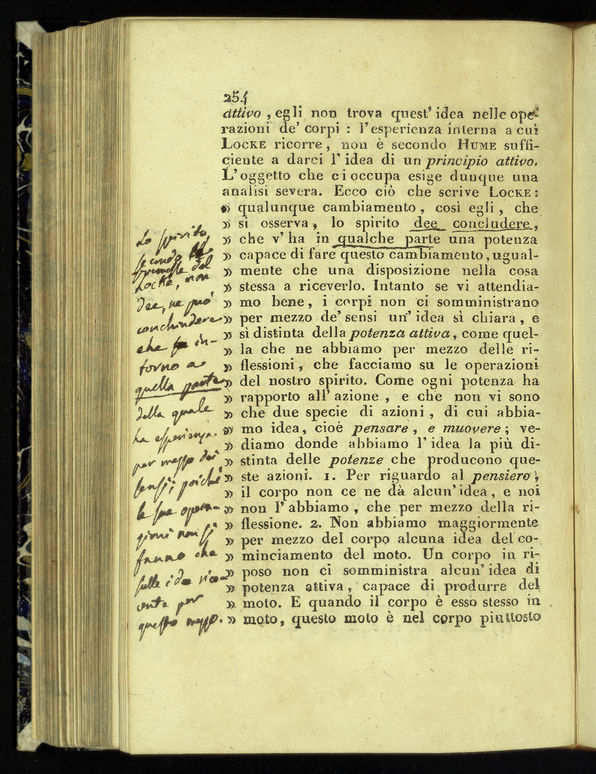 254
attivo, egli non trova quest' idea nelle ope-
razioni de' corpi : l'esperienza interna a cui
LOCKE ricorre, non è secondo HUME suffi-
ciente a darci l' idea di un principio attivo.
L'oggetto che ci occupa esige dunque una
analisi severa. Ecco ciò che scrive LOCKE:
» qualunque cambiamento, così egli, che
» si osserva, lo spirito dee concludere,
» che v' ha in qualche parte una potenza
» capace di fare questo cambiamento, ugual-
» mente che una disposizione nella cosa
» stessa a riceverlo. Intanto se vi attendia-
» mo bene, i corpi non ci somministrano
» per mezzo de' sensi un' idea sì chiara, e
» sì distinta della potenza attiva, come quel-
» la che ne abbiamo per mezzo delle ri-
» flessioni, che facciamo su le operazioni
» del nostro spirito. Come ogni potenza ha
» rapporto all' azione, e che non vi sono
» che due specie di azioni, di cui abbia-
» mo idea, cioè pensare, e muovere; ve-
» diamo donde abbiamo l' idea la più di-
» stinta delle potenze che producono que-
» ste azioni. 1. Per riguardo al pensiero,
» il corpo non ce ne dà alcun' idea, e noi
» non l' abbiamo, che per mezzo della ri-
» flessione. 2. Non abbiamo maggiormente
» per mezzo del corpo alcuna idea del co-
» minciamento del moto. Un corpo in ri-
» poso non ci somministra alcun' idea di
» potenza attiva, capace di produrre del
» moto. E quando il corpo è esso stesso in
» moto, questo moto è nel corpo piuttosto
Lo spirito,
secondo le
premesse del
Locke, non
dee, ne può
conchiudere
che in-
torno a
quella parte
della quale
ha esperienza
per mezzo dei
sensi; poichè
le sue opera-
zioni non si
fanno che
sulle idee rice-
vute per
questo mezzo.